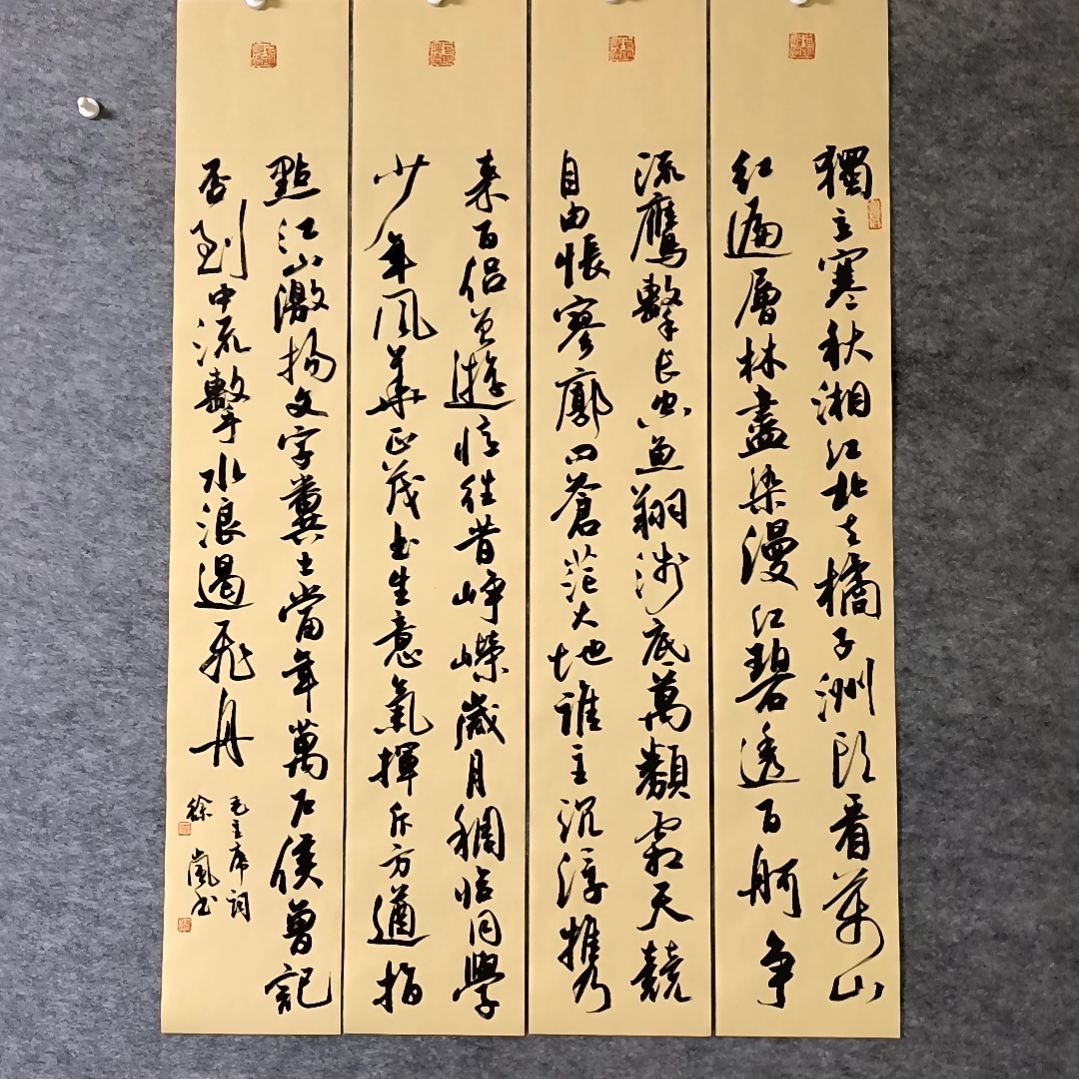 獨立寒秋湘江北去橘子洲頭看萬山
紅遍層林盡染漫江碧透百舸争
流鷹擊長空魚翔淺底萬類霜天競
自由悵寥廓问蒼茫大地誰主沉浮携
来百侣曾遊憶往昔崢嶸歲月稠恰同學
少年風華正茂書生意氣揮斥方遒指
點江山激揚文字糞土當年萬户侯曾記
否到中流擊水浪遏飛舟
毛主席詞
徐嵐书